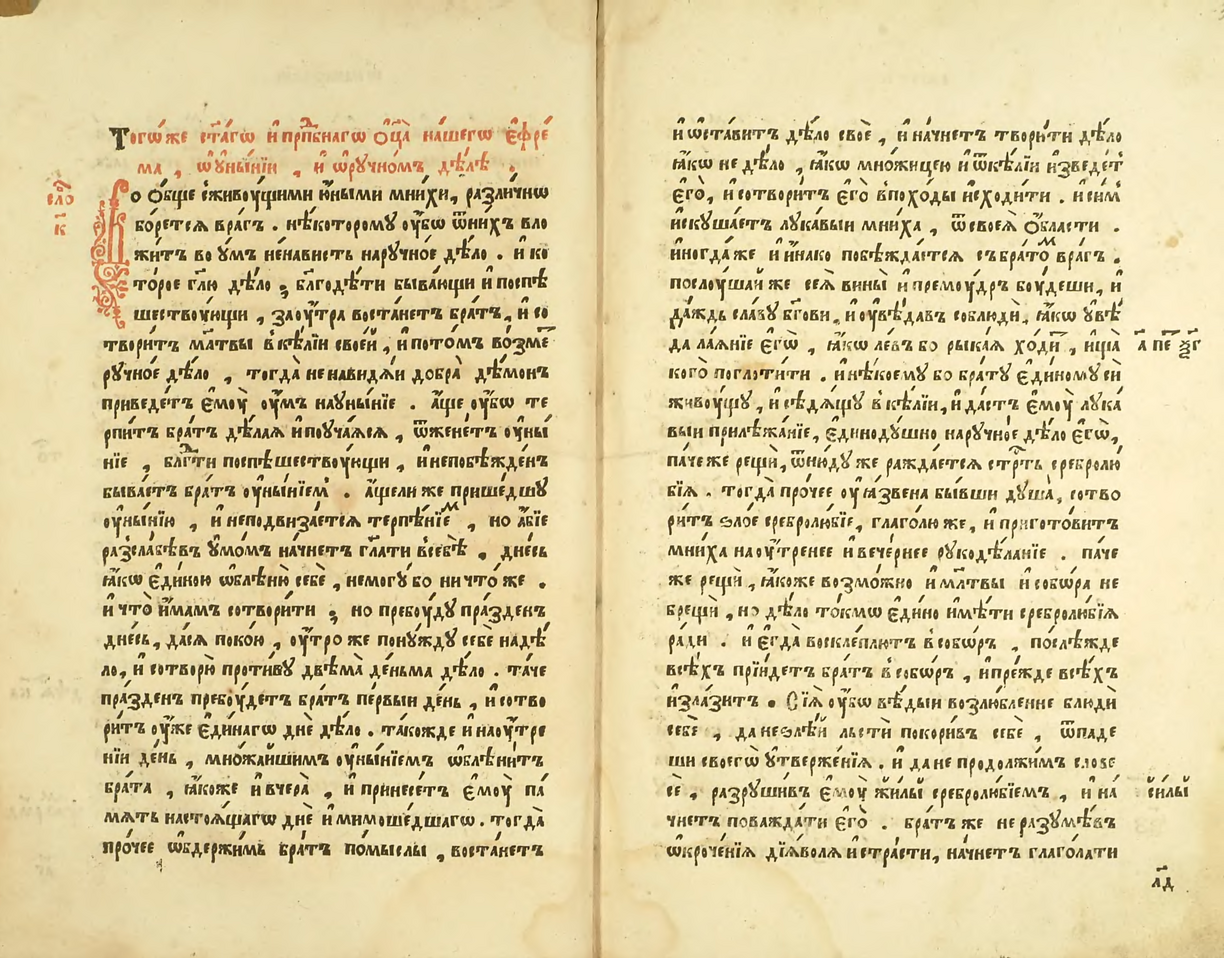 Тогѡ́же ст҃а́гѡ и҆ прⷣпбнагѡ ѻ҆ц҃а̀ на́шегѡ є҆фре́
ма , ѡ҆ ᲂу҆ны́нїи , и҆ ѡ҆ рꙋ́чномъ дѣ́лѣ .
сло́
к҃
Ко ѻ҆́бще сживꙋ́щими ю҆́ными мни́хи, разли́чнѡ
бо́ретсѧ вра́гъ . нѣ́которомꙋ ᲂу҆́бѡ ѿ ни́хъ вло
жи́тъ во ᲂу҆́мъ не́нависть на рꙋ́чное дѣ́ло . и҆ ко
то́рое гл҃ю дѣ́ло ; бл҃года́ти быва́ющи и҆ поспѣ
шествꙋ́ющи , заᲂу҆́тра воста́нетъ бра́тъ, и҆ со
твори́тъ мл҃твы в̾ кѣ́лїи свое́й , и҆ пото́мъ во́зме
рꙋ́чное дѣ́ло , тогда̀ не нави́дѧи добра̀ де́монъ
приведе́тъ є҆мꙋ̀ ᲂу҆́мъ на ᲂу҆ны́нїе . а҆́ще ᲂу҆́бѡ те
рпи́тъ бра́тъ дѣ́лаѧ и҆ поꙋча́ѧсѧ , ѿжене́тъ ᲂу҆ны́
нїе , бл҃гⷣти поспѣшествꙋ́ющи , и҆ непобѣжде́нъ
быва́етъ бра́тъ ᲂу҆ны́нїемъ . а҆́щели же прише́дшꙋ
ᲂу҆ны́нїю , и҆ неподвиза́етсѧ терпѣ́нїеⷨ , но а҆́бїе
раз̾слабѣ́въ ᲂу҆мо́мъ на́чнетъ гл҃ати в̾ себѣ̀ , дне́сь
ꙗ҆́кѡ є҆ди́ною ѡ҆блѣню̀ себѐ , не могꙋ́ бо ничто́же .
и҆ что̀ и҆́мамъ сотвори́ти ; но пребꙋ́дꙋ пра́зденъ
дне́сь, да сѧ поко́ю , ᲂу҆́тро же понꙋ́ждꙋ себѐ на дѣ́
ло, и҆ сотворю̀ проти́вꙋ двѣма̀ де́ньма дѣ́ло . та́че
пра́зденъ пребꙋ́детъ бра́тъ пе́рвыи де́нь , и҆ сотво
ри́тъ ᲂу҆́же є҆ди́нагѡ днѐ дѣ́ло . та́кожде и҆ наᲂу҆́тре
нїи де́нь , мно́жайшимъ ᲂу҆ны́нїемъ ѡ҆блѣни́тъ
бра́та , ꙗ҆́коже и҆ вчера̀ , и҆ принесе́тъ є҆мꙋ̀ па
мѧ́ть настоѧ́щагѡ днѐ и҆ мимоше́дшагѡ . тогда̀
про́чее ѡ҆бдержи́мь бра́тъ по́мыслы , воста́нетъ
и҆ ѡ҆ста́витъ дѣ́ло своѐ , и҆ на́чнетъ твори́ти дѣ́ло
ꙗ҆́кѡ не дѣ́ло , ꙗ҆́кѡ мно́жицею и҆ ѿ кѣ́лїи и҆зведе́т
є҆го̀, и҆ сотвори́тъ є҆го̀ в̾ похо́ды и҆схо́дити . и҆ си́м
и҆скꙋша́етъ лꙋка́выи мни́ха , ѿ своеѧ̀ ѻ҆́бласти .
и҆ногда́же и҆ и҆́нако побѣжда́етсѧ съ бра́тоⷨ вра́гъ .
послꙋ́шай же сеѧ̀ вины̀ и҆ премꙋ́дръ бꙋ́деши, и҆
да́ждь сла́вꙋ бг҃ови, и҆ ᲂу҆вѣ́давъ соблюдѝ, ꙗ҆́кѡ ᲂу҆вѣ́
да лаѧ́нїе є҆гѡ̀ , ꙗ҆́кѡ ле́въ бо рыка́ѧ хо́ди , и҆щѧ̀
а҃ пе г҃і
кого̀ поглоти́ти . и҆ нѣ́коемꙋ бо бра́тꙋ є҆ди́номꙋ си
живꙋ́щꙋ, и҆ сѣдѧ́щꙋ в̾ кѣ́лїи, и҆ да́стъ є҆мꙋ̀ лꙋка́
выи прилѣжа́нїе, є҆динодꙋ́шно на рꙋ́чное дѣ́ло є҆гѡ̀,
па́че же рещѝ, ѿню́дꙋ же ражда́етсѧ стрⷭ҇ть сребролю́
бїѧ . тогда̀ про́чее ᲂу҆ꙗ҆́звена бы́вши дꙋша̀, сотво
ри́тъ ѕло́е сребролю́бїе, глаго́лю же, и҆ пригото́витъ
мни́ха на ᲂу҆́тренее и҆ вече́рнее рꙋкодѣ́ланїе . па́че
же рещѝ , ꙗ҆́коже возмо́жно и҆ мл҃твы и҆ собѡ́ра не
брещѝ , но дѣ́ло то́кмѡ є҆ди́но и҆мѣ́ти сребролю́бїѧ
ра́ди . и҆ є҆гда̀ воскле́плютъ в̾ собѡ́ръ , послѣ́жде
всѣ́хъ прїи́детъ бра́тъ в̾ собѡ́ръ , и҆ пре́жде всѣ́хъ
и҆зла́зитъ . Сїѧ̀ ᲂу҆́бѡ вѣ́дыи возлю́бленне блюдѝ
себѐ , да не ѕлѣ́й ле́сти покори́въ себѐ , ѿпаде
ши своегѡ̀ ᲂу҆твержє́нїѧ . и҆ да не продо́лжимъ слове
се , разрꙋ́шивъ є҆мꙋ̀ жи́лы сребролю́бїемъ , и҆ на́
си́лы
чнетъ поважда́ти є҆го̀ . бра́тъ же не разꙋмѣ́въ
ѡ҆кроче́нїѧ дїѧ́волѧ и҆ стра́сти, на́чнетъ глаго́лати
л҃д